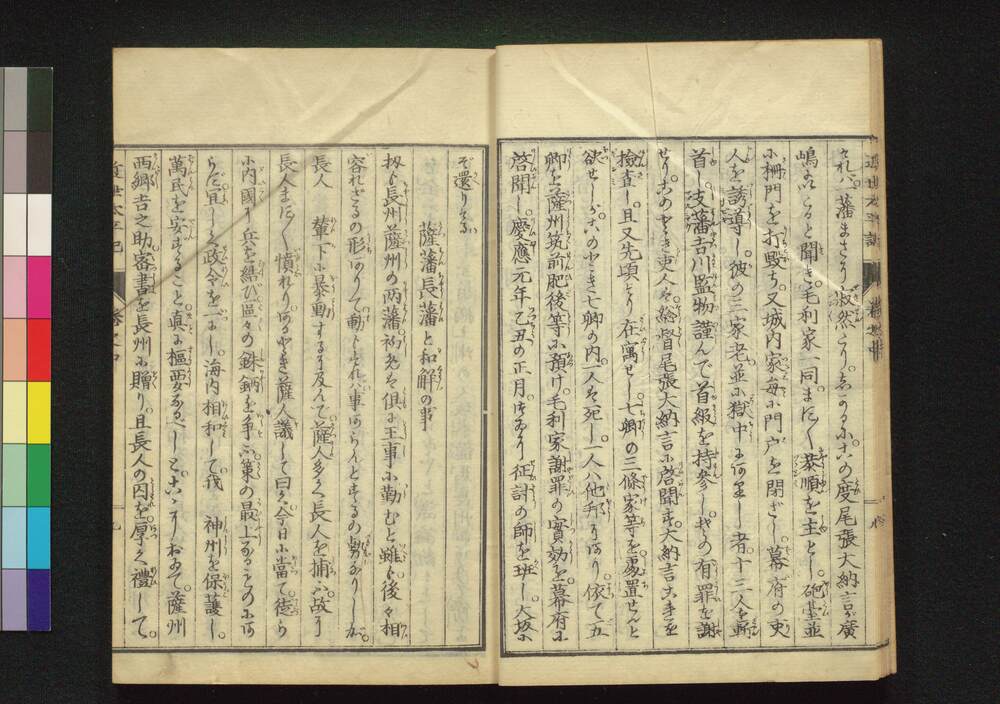 近世太平記
されバ藩まさり寂然とりしづかふ此の度尾張大納言が廣
嶋に いると聞き毛利家一同まに〱恭順を主とし砲臺並
小柵門を打毀ち又城内家毎に門戸を閉ざし幕府の吏
人を誘導し彼の三家老並に獄中にありし者十三人を斬
首し支藩吉川監物謹んで首級を持参しその有罪を謝
せり このとき吏人を 督尾張大納言に啓聞す大納言 を
檢査し且又先頃より在寓せし七卿の三條家等を處置せんと
欲せしが このとき七卿の内一人は死し一人ハ他邦にあり依て五
卿を薩州筑前肥後等に預け毛利家謝罪の實効を幕府に
啓聞し慶應元年乙丑の正月 征討の師を班し大坂に
ぞ還りける
薩藩長藩と和解の事
扨も長州薩州の両藩初めは俱に王事に勤むと雖も後々相
容れざるの形ありて動もすれバ事あらんとするの勢なりしが
長人 輦下に暴動するに及んで薩人多く長人を捕ふ故に
長人ます〱憤れり あるとき薩人議して曰く今日に當て徒ら
に内國に兵を結び區々の銖錙を争ふハ策の最上なるものにあ
らず宜しく政令を一にし海内相和して我 神州を保護し
萬民を安ずること真に樞要なるべしと こゝにおゐて薩州
西郷吉之助密書を長州に贈り且長人の囚を厚く禮して
近世太平記 九